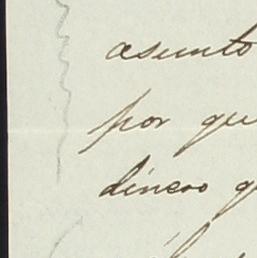 asunto
por qu
dinero q